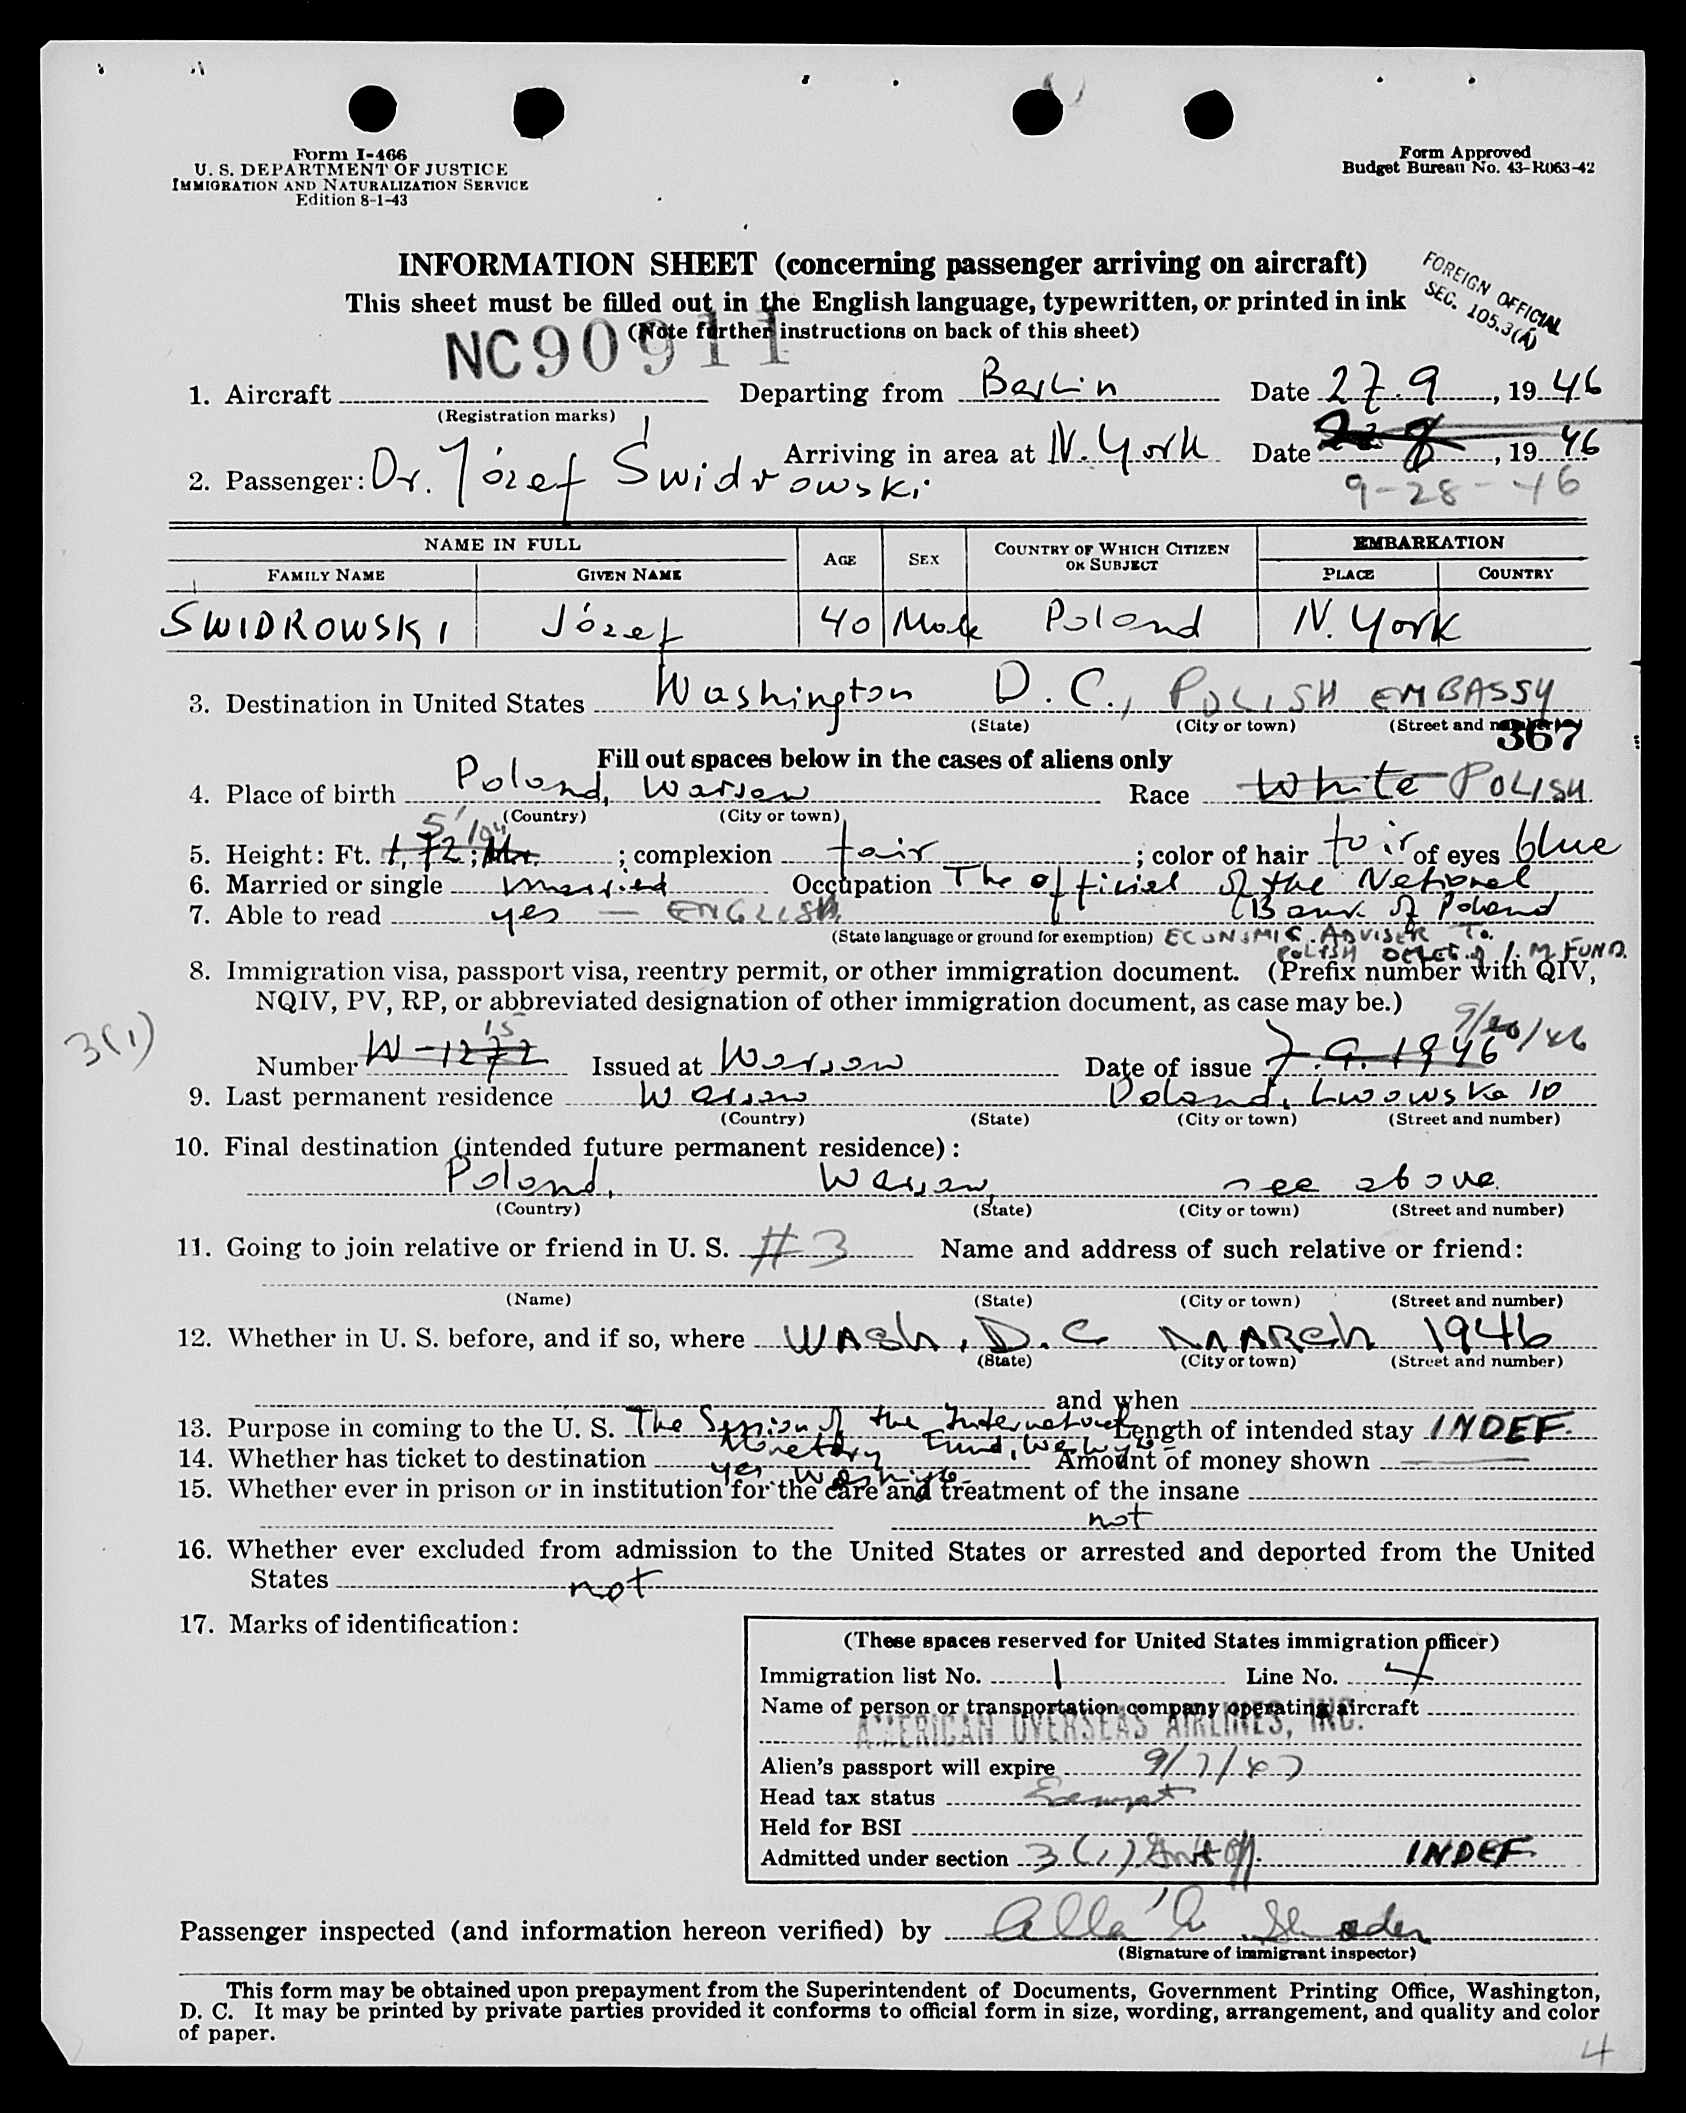 Form I-466
U. S. DEPARTMENT OF JUSTICE
IMMIGRATION AND NATURALIZATION SERVICE
Edition 8-1-43
Form Approved
Budget Bureau No. 43-R063-42
INFORMATION SHEET (concerning passenger arriving on aircraft)
This sheet must be filled out in the English language, typewritten, or printed in ink
(Note further instructions on back of this sheet)
FOREIGN OFFICIAL
SEC. 105.3(A)
NC90911
1. Aircraft Departing from Berlin Date 27.9, 1946
(Registration marks)
Arriving in area at N. York Date , 1946
9-28-46
2. Passenger: Dr. Józef Świdrowski
NAME IN FULL AGE SEX COUNTRY OF WHICH CITIZEN OR SUBJECT EMBARKATION
FAMILY NAME GIVEN NAME PLACE COUNTRY
ŚWIDROWSKI Józef 40 Male Poland N. York
3. Destination in United States Washington D. C., POLISH EMBASSY
(State) (City or town) (Street and number)
367
Fill out spaces below in the cases of aliens only
4. Place of birth Poland, Warsaw Race White POLISH
(Country) (City or town)
5. Height: Ft. 5' ; complexion fair ; color of hair fair of eyes blue
6. Married or single married Occupation The official of the National
7. Able to read yes — ENGLISH Bank of Poland
(State language or ground for exemption) ECONOMIC ADVISER TO
POLISH DELEG. I. M. FUND.
8. Immigration visa, passport visa, reentry permit, or other immigration document. (Prefix number with QIV,
NQIV, PV, RP, or abbreviated designation of other immigration document, as case may be.)
3(1)
15 9/20/46
Number W-1272 Issued at Warsaw Date of issue 7.9.1946
9. Last permanent residence Warsaw Poland, Lwowska 10
(Country) (State) (City or town) (Street and number)
10. Final destination (intended future permanent residence):
Poland, Warsaw, see above
(Country) (State) (City or town) (Street and number)
11. Going to join relative or friend in U. S. #3 Name and address of such relative or friend:
(Name) (State) (City or town) (Street and number)
12. Whether in U. S. before, and if so, where WASh, D. C. MARCh 1946
(State) (City or town) (Street and number)
and when
13. Purpose in coming to the U. S. The Session of the International Length of intended stay INDEF.
Monetary Fund,
14. Whether has ticket to destination yes Amount of money shown —
15. Whether ever in prison or in institution for the care and treatment of the insane
not
16. Whether ever excluded from admission to the United States or arrested and deported from the United
States not
17. Marks of identification:
(These spaces reserved for United States immigration officer)
Immigration list No. 1 Line No. 4
Name of person or transportation company operating aircraft
AMERICAN OVERSEAS AIRLINES, INC.
Alien's passport will expire 9/7/47
Head tax status Exempt
Held for BSI
Admitted under section 3(1) INDEF
Passenger inspected (and information hereon verified) by
(Signature of immigrant inspector)
This form may be obtained upon prepayment from the Superintendent of Documents, Government Printing Office, Washington,
D. C. It may be printed by private parties provided it conforms to official form in size, wording, arrangement, and quality and color
of paper.
4